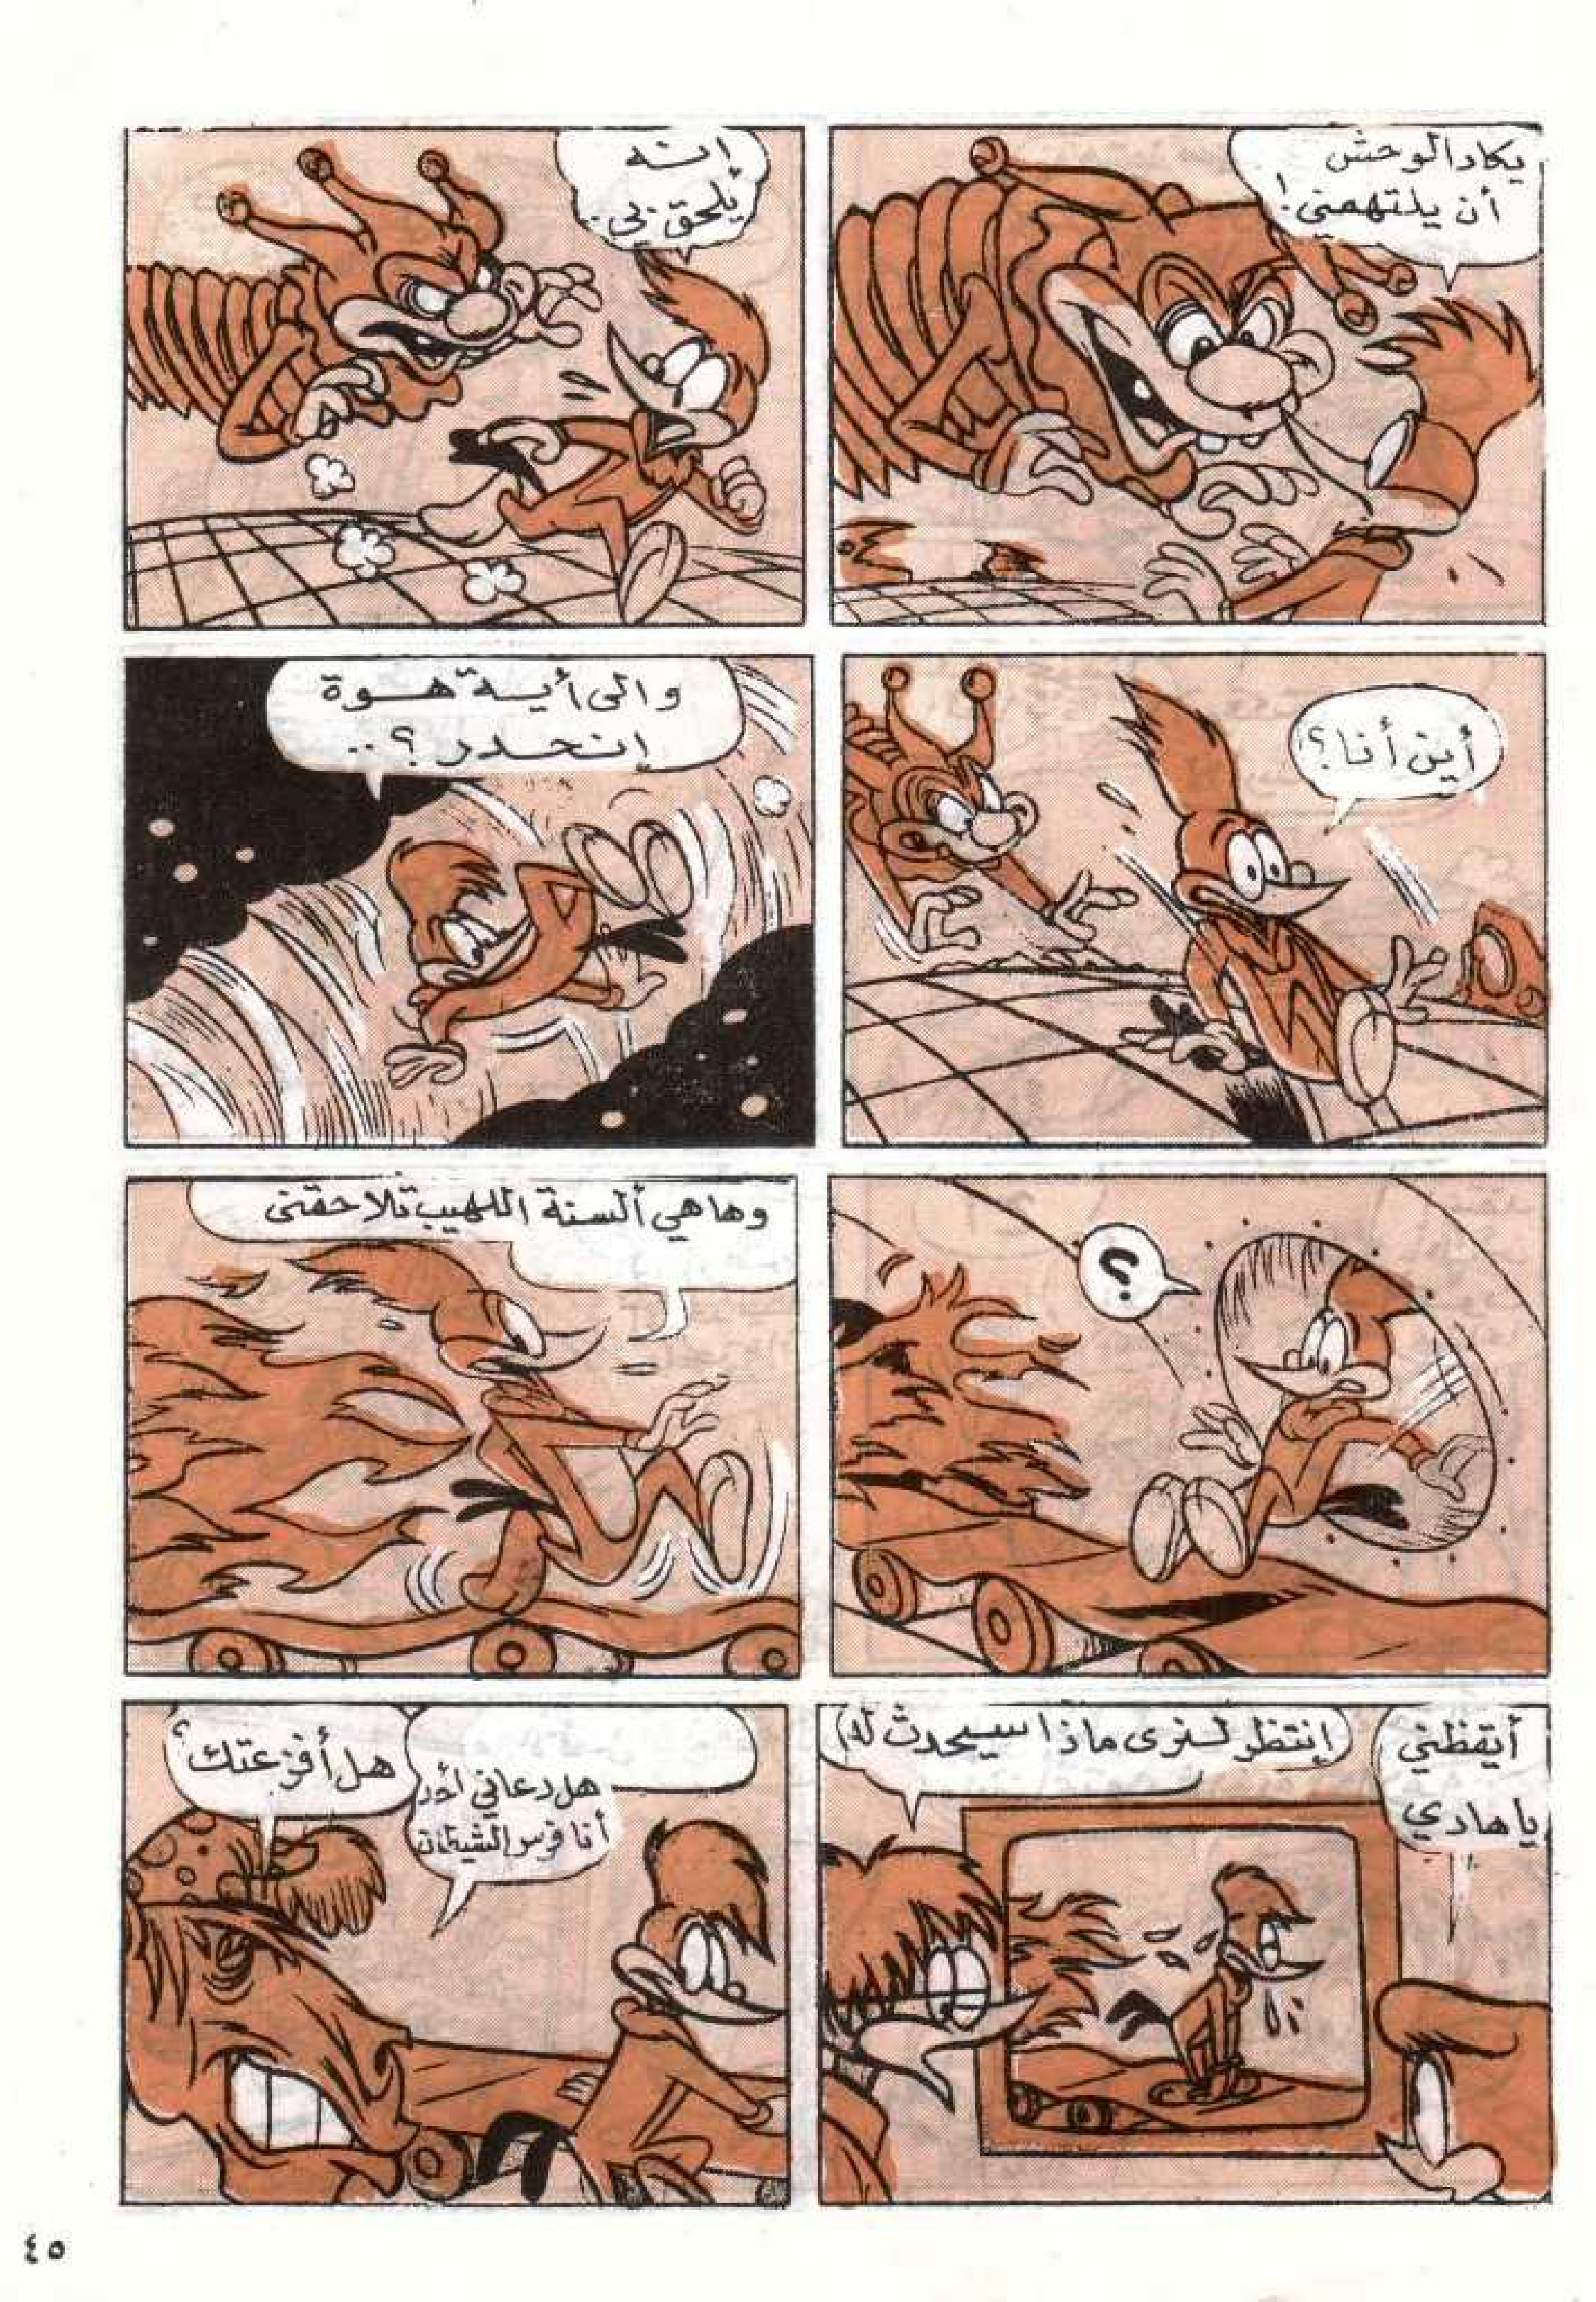 يكاد الوحش
أن يلتهمني!
إنه
يلحق بي..
أين أنا؟!
والى أية هوة
إنحدر؟..
؟
وها هي ألسنة اللهيب تلاحقني
أيقظني
يا هادي
إنتظر لنرى ماذا سيحدث له!
هل دعاني أحد
أنا فرس الشيطان
هل أفزعتك؟
٤٥